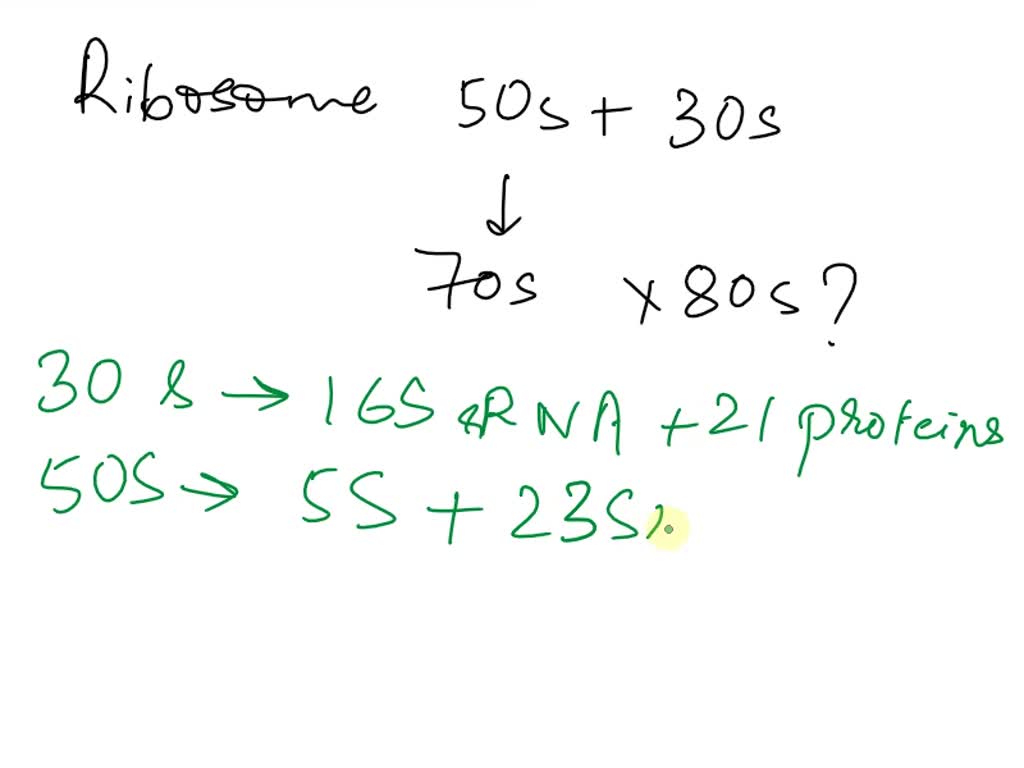 Ribosome 50s + 30s
↓
70s x 80s?
30 s → 16S rRNA + 21 proteins
50S → 5S + 23S